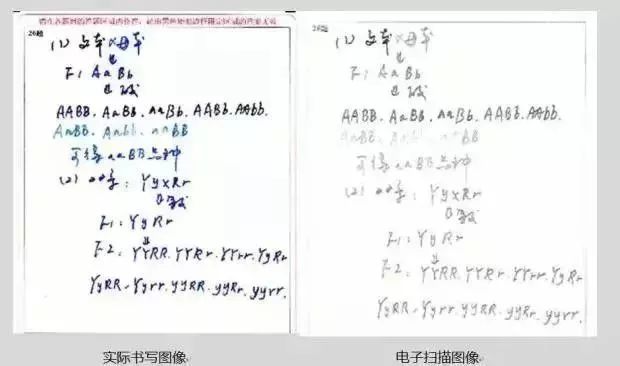 请在各题目的答题区域内作答，超出黑色矩形边框限定区域的答案无效
26题
(1) 父本×母本
↓
F1 AaBb
↓
AABB. AaBB. aaBb. AABb. AAbb.
AaBB. Aabb. aaBB
可得 aaBB
(2) : YyxRr
F1: YyRr
↓
F2: YYRR. YYRr. YYrr. YyRr
YyRR. Yyrr. yyRR. yyRr. yyrr.
实际书写图像
26题
(1) 父本×母本
↓
F1 AaBb
↓
AABB. AaBB. aaBb. AABb. AAbb.
AaBB. Aabb. aaBB
可得 aaBB
(2) : YyxRr
F1: YyRr
↓
F2: YYRR. YYRr. YYrr. YyRr
YyRR. Yyrr. yyRR. yyRr. yyrr.
电子扫描图像